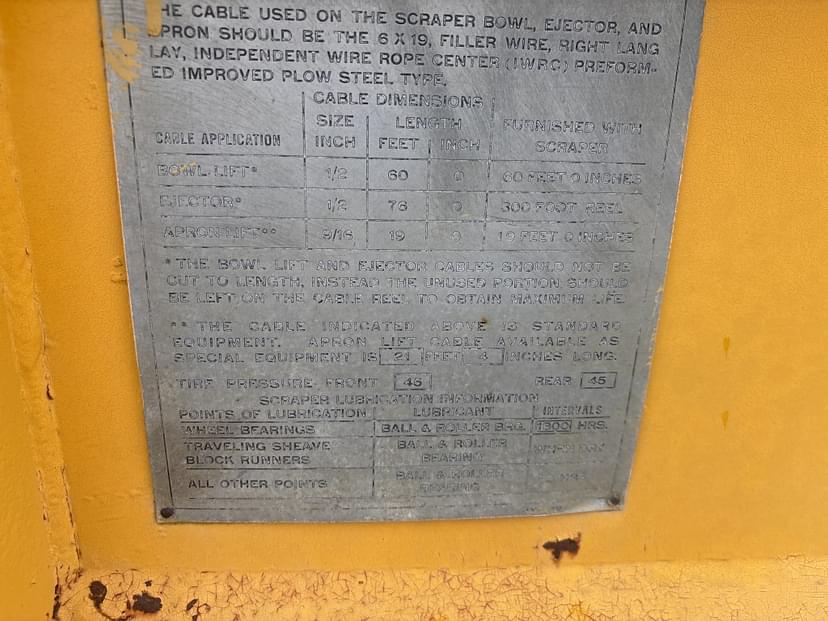 THE CABLE USED ON THE SCRAPER BOWL, EJECTOR, AND
APRON SHOULD BE THE 6 X 19, FILLER WIRE, RIGHT LANG
LAY, INDEPENDENT WIRE ROPE CENTER (IWRC) PREFORM-
ED IMPROVED PLOW STEEL TYPE.
CABLE DIMENSIONS
SIZE LENGTH FURNISHED WITH
CABLE APPLICATION INCH FEET INCH SCRAPER
BOWL LIFT* 1/2 60 0 60 FEET 0 INCHES
EJECTOR* 1/2 76 0 300 FOOT REEL
APRON LIFT** 9/16 19 19 FEET 0 INCHES
* THE BOWL LIFT AND EJECTOR CABLES SHOULD NOT BE
CUT TO LENGTH, INSTEAD THE UNUSED PORTION SHOULD
BE LEFT ON THE CABLE REEL TO OBTAIN MAXIMUM LIFE
** THE CABLE INDICATED ABOVE IS STANDARD
EQUIPMENT. APRON LIFT CABLE AVAILABLE AS
SPECIAL EQUIPMENT IS 21 FEET 4 INCHES LONG.
TIRE PRESSURE FRONT 45 REAR 45
SCRAPER LUBRICATION INFORMATION
POINTS OF LUBRICATION LUBRICANT INTERVALS
WHEEL BEARINGS BALL & ROLLER BRG. 1300 HRS.
TRAVELING SHEAVE BALL & ROLLER
BLOCK RUNNERS BEARING
ALL OTHER POINTS BALL & ROLLER
BEARING